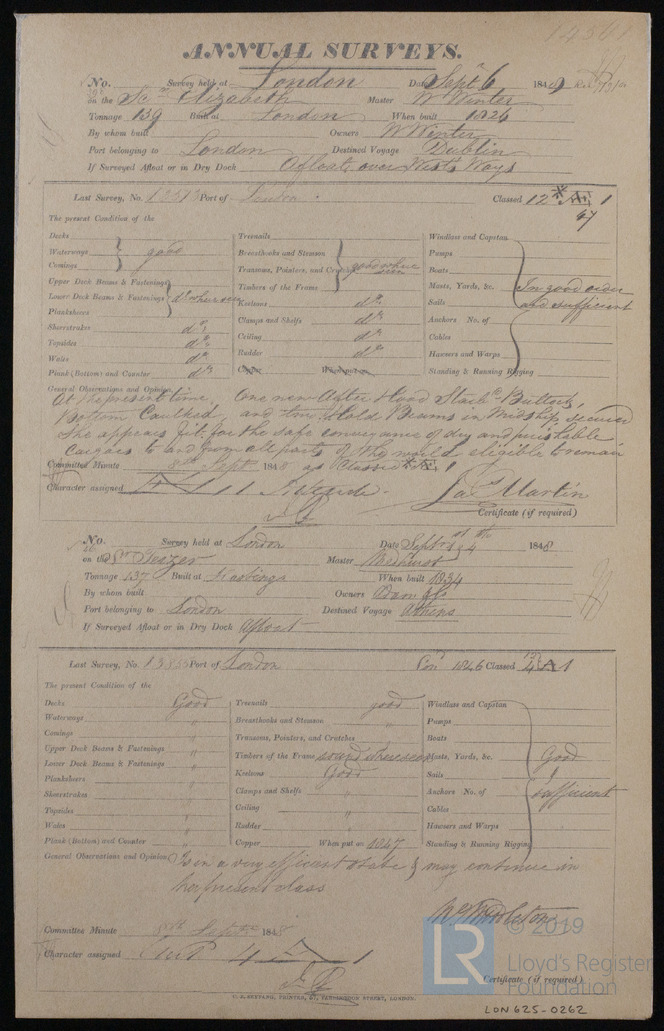 14561
ANNUAL SURVEYS.
No. Survey held at London Date Sept 6 184
on the Scr Elizabeth Master W Winter
Tonnage 139 Built at London When built 1826
By whom built Owners W Winter
Port belonging to London Destined Voyage Dublin
If Surveyed Afloat or in Dry Dock Afloat over West's Ways
Last Survey, No. 13513 Port of London. Classed 12 1
47
The present Condition of the
Decks
Waterways good
Comings
Upper Deck Beams & Fastenings
Lower Deck Beams & Fastenings do where seen
Planksheers
Sheerstrakes do
Topsides do
Wales do
Plank (Bottom) and Counter do
Treenails
Breasthooks and Stemson
Transoms, Pointers, and Crutches good where seen
Timbers of the Frame
Keelsons do
Clamps and Shelfs do
Ceiling do
Rudder do
Copper When put on
Windlass and Capstan
Pumps
Boats
Masts, Yards, &c. In good order
Sails and sufficient
Anchors No. of
Cables
Hawsers and Warps
Standing & Running Rigging
General Observations and Opinion,
At the present time, One new After Hood Starbd Buttock,
Bottom Caulked, and two Hold Beams in Midship secured
She appears fit for the safe conveyance of dry and perishable
Cargoes to and from all parts of the world eligible to remain
Committee Minute 8th Sept 1848 as Classed 1
Character assigned 1 Jas Martin
Certificate (if required)
No. Survey held at London Date Septr 1st 4th 1848
on the Sr Teizer Master Medhurst
Tonnage 137 Built at Hastings When built 1834
By whom built Owners
Port belonging to London Destined Voyage Athens
If Surveyed Afloat or in Dry Dock Afloat
Last Survey, No. 13853 Port of London 1846 Classed A 1
The present Condition of the
Decks Good
Waterways "
Comings "
Upper Deck Beams & Fastenings "
Lower Deck Beams & Fastenings "
Planksheers "
Sheerstrakes "
Topsides "
Wales "
Plank (Bottom) and Counter "
Treenails good
Breasthooks and Stemson "
Transoms, Pointers, and Crutches
Timbers of the Frame sound where seen
Keelsons Good
Clamps and Shelfs
Ceiling "
Rudder
Copper When put on 1847
Windlass and Capstan
Pumps
Boats
Masts, Yards, &c. Good
Sails &
Anchors No. of sufficient
Cables
Hawsers and Warps
Standing & Running Rigging
General Observations and Opinion, Is in a very efficient state & may continue in
her present class
Wm Middleton
Committee Minute 8th Septr 1848
Character assigned A 1
Certificate (if required)
LR © 2019
Lloyd's Register
Foundation
LON625-0262